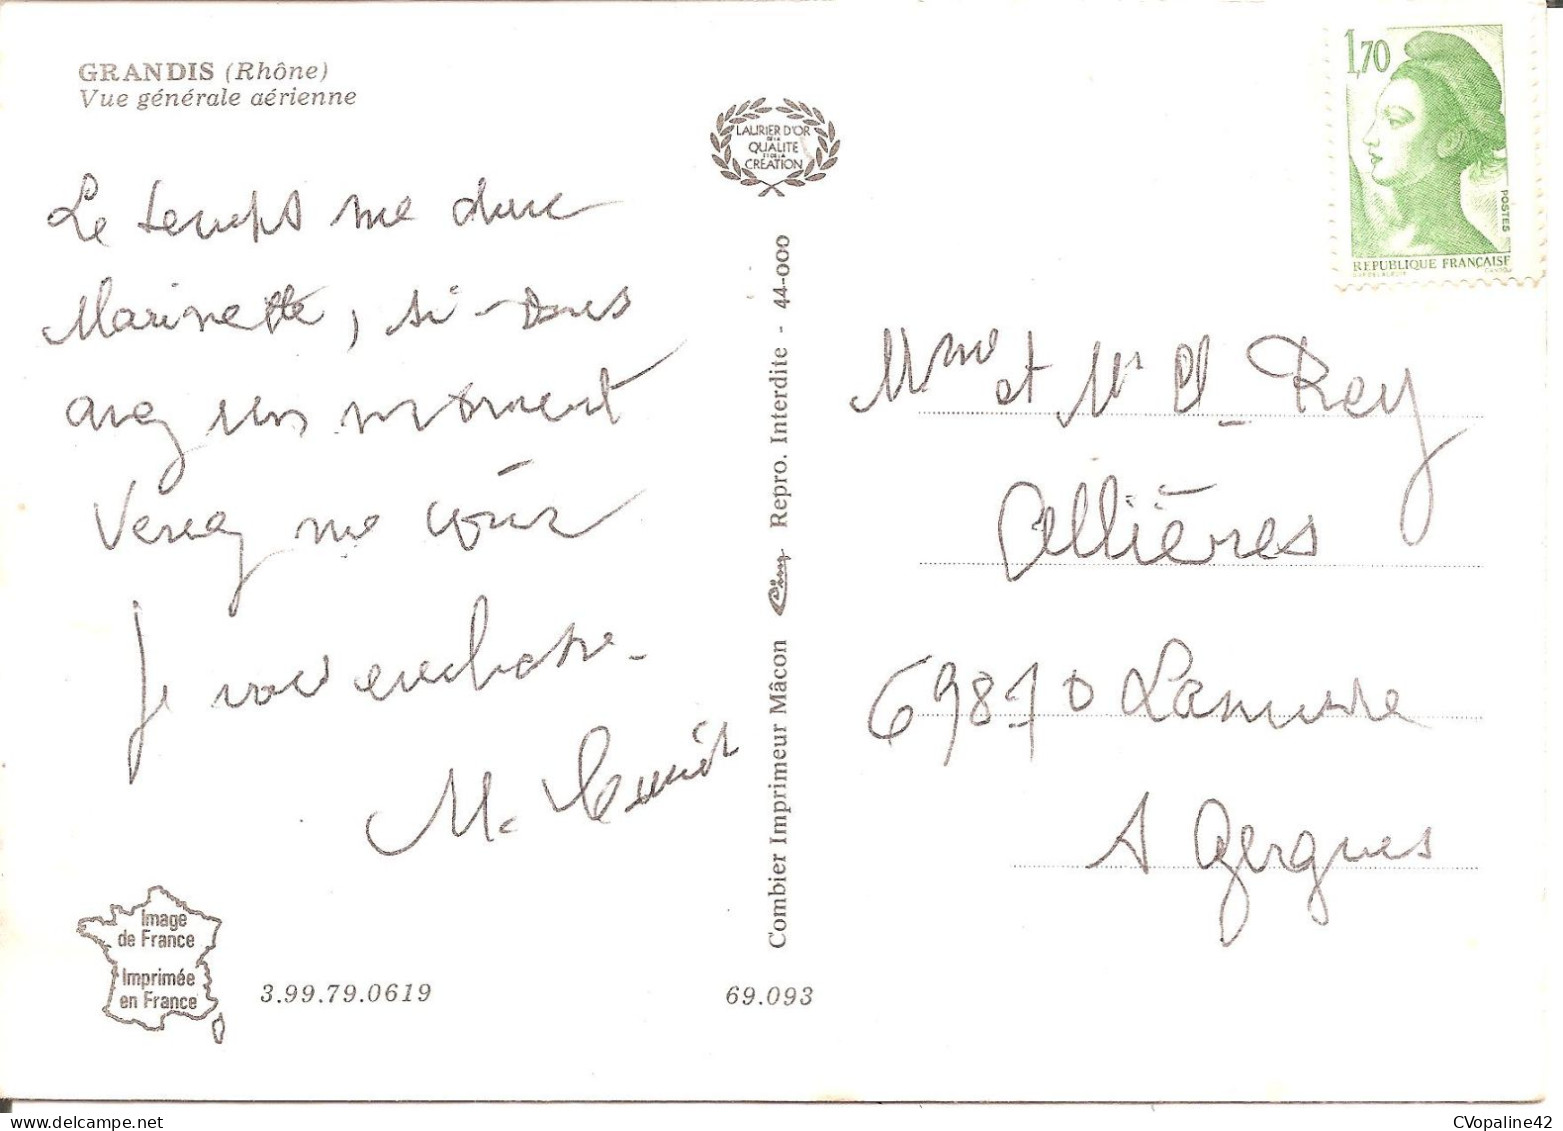 GRANDIS (Rhône)
Vue générale aérienne
LAURIER D'OR
DE LA
QUALITE
ET DE LA
CREATION
1,70
POSTES
REPUBLIQUE FRANÇAISE
Le temps me dure
Marinette, si vous
avez un moment
Venez me voir
Je vous embrasse.
M.
Combier Imprimeur Mâcon Cim Repro. Interdite - 44-000
Mme et Mr Cl. Rey
Allières
69870 Lamure
A Zergues
Image
de France
Imprimée
en France
3.99.79.0619
69.093
CVopaline42